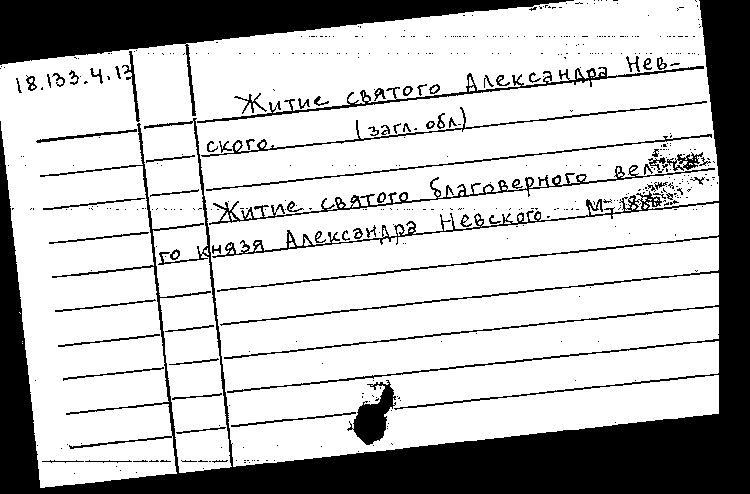 18.133.4.13
Житие святого Александра Нев-
ского. (загл. обл.)
Житие святого благоверного велико-
го князя Александра Невского. М.,